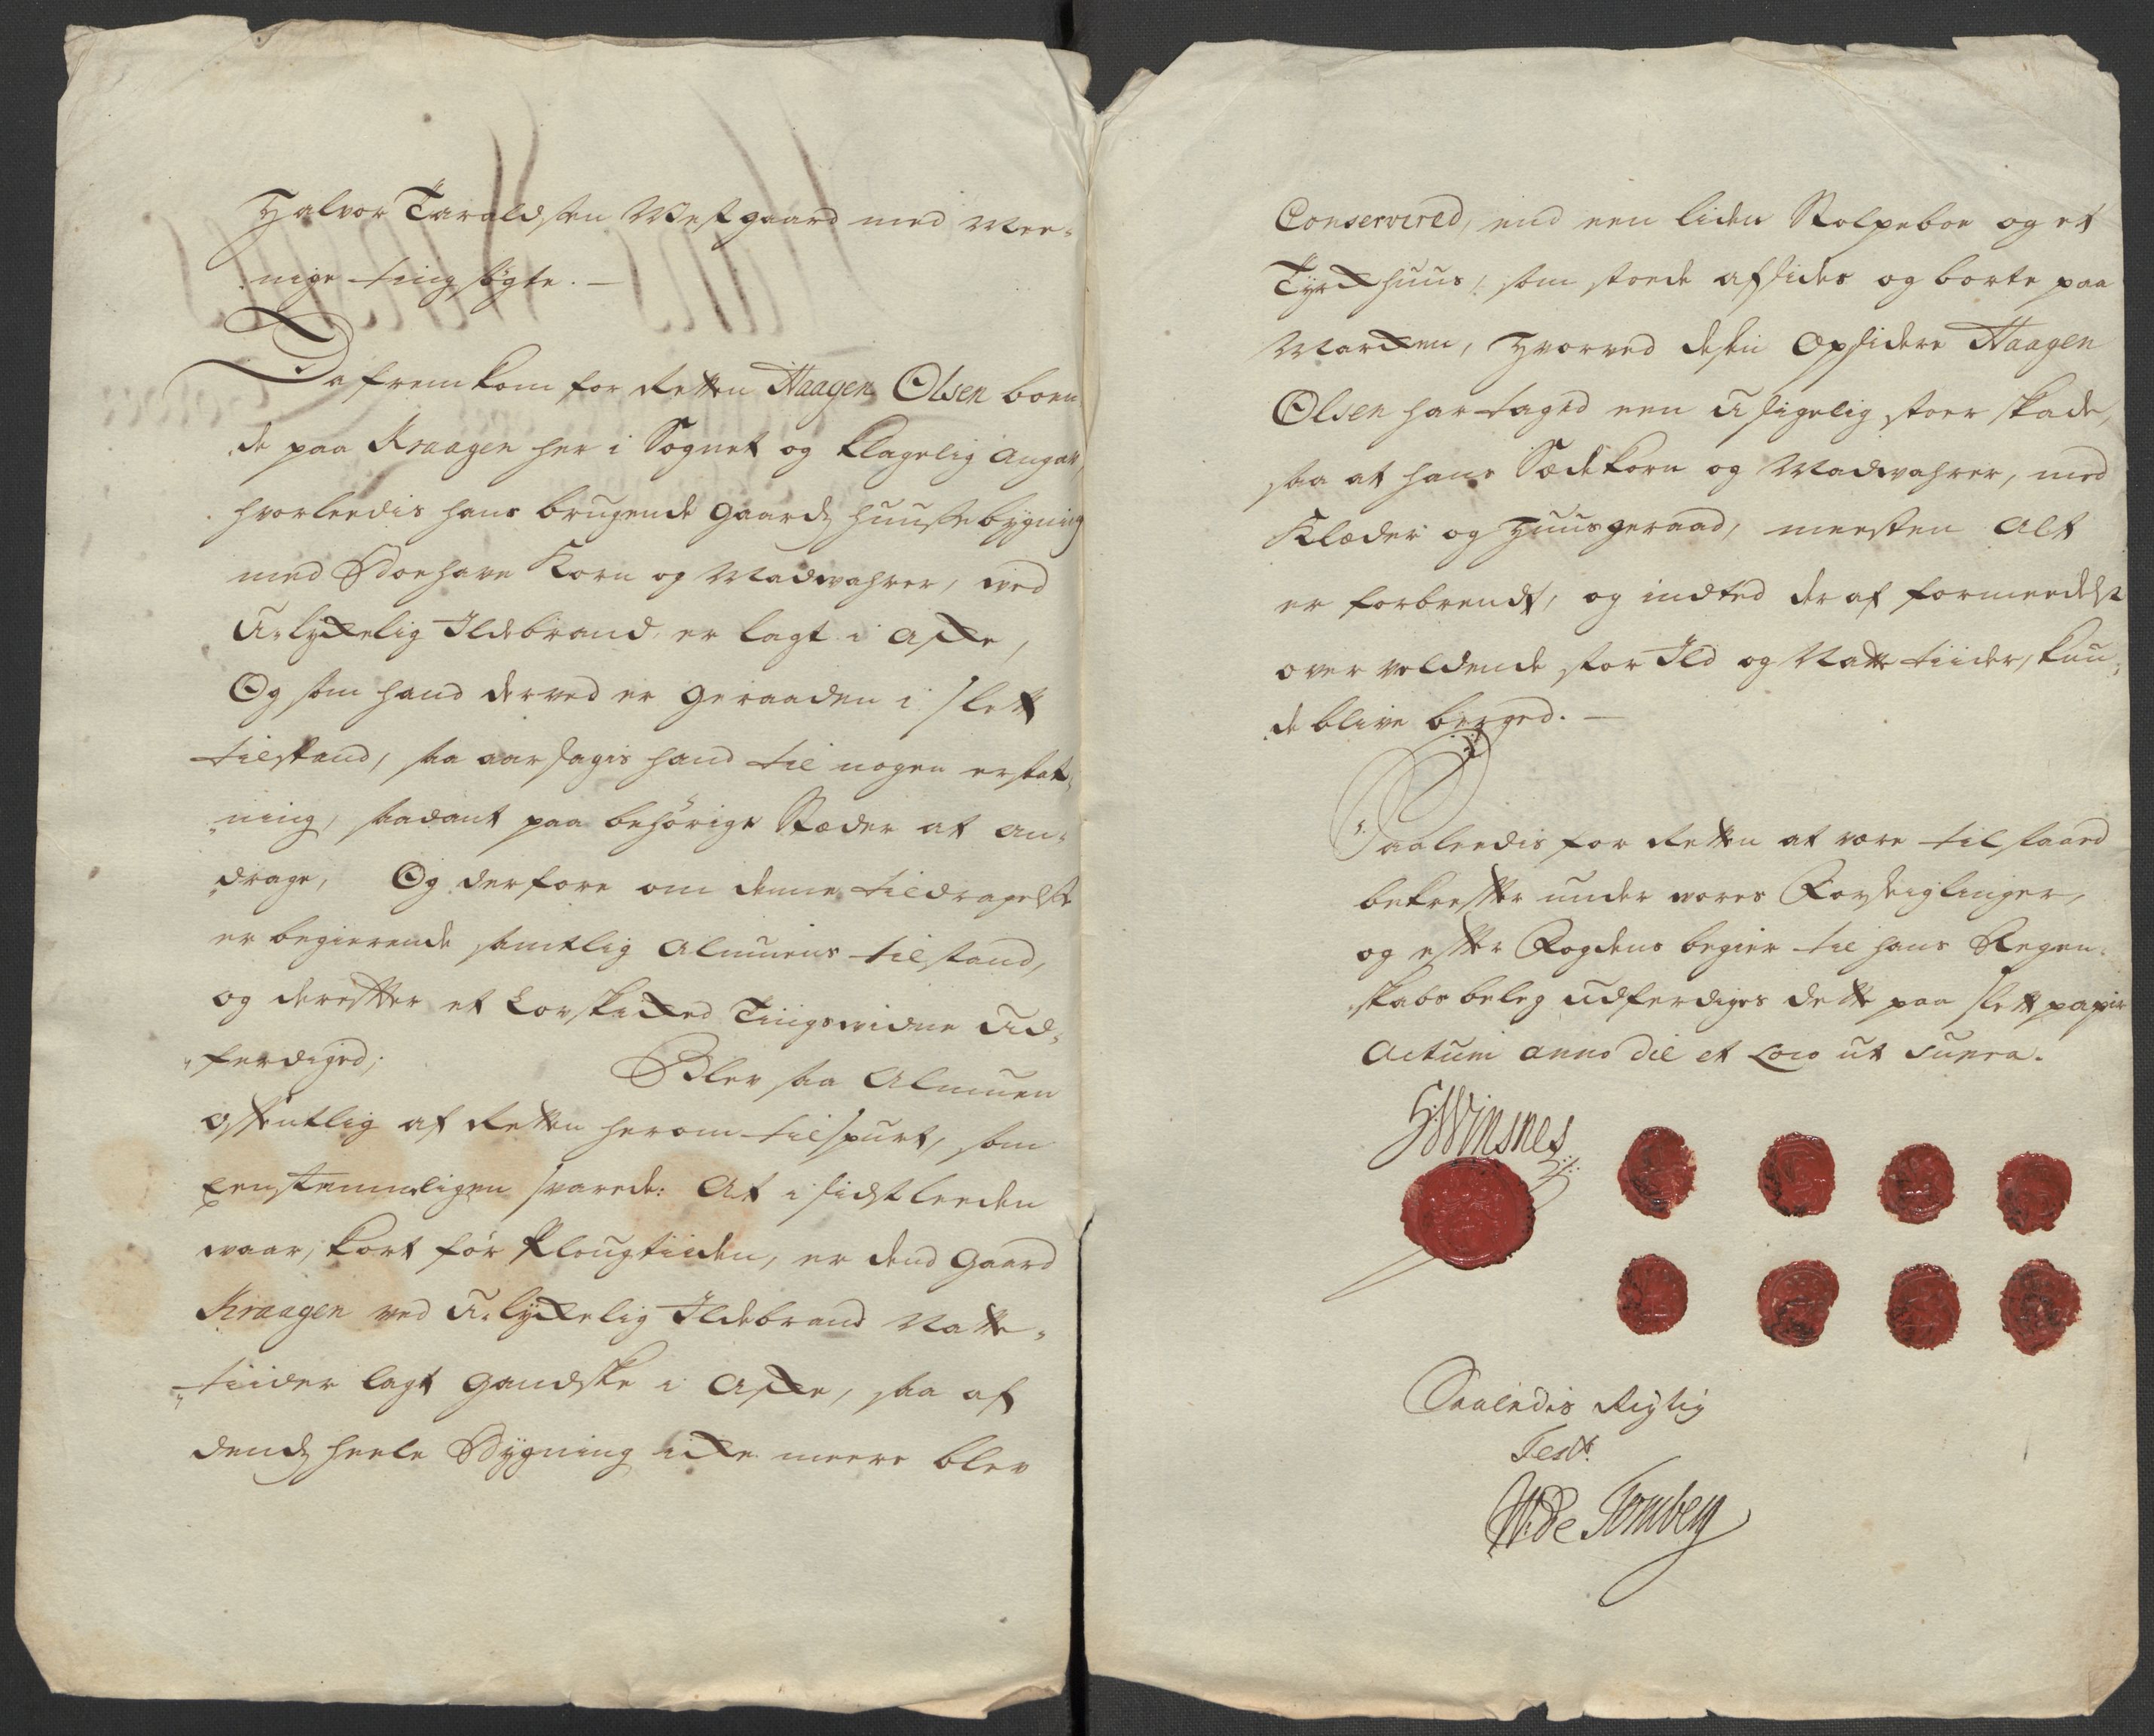 Halvor Taraldsen Westgaard med Mee-
nige ting søgte. —
Da fremkom for Retten Haagen Olsen boen
de paa Kraagen her i Sognet og klagelig angav,
hvorleedis hans brugende gaards huusse bygning
med Boehave Korn og Madwahrer, ved
U-lykkelig Ildebrand er lagt i Aske,
Og som hand derved er geraaden i slett
tilstand, saa aarsagis hand til nogen erstat-
ning, saadant paa behörige Stæder at an-
drage, Og derfore om denne tildragelse
er begierende samtlig Almuens tilstand,
og derefter et Lovskikked Tingswidne Ud-
ferdiged; Blev saa Almuen
offentlig af Retten herom tilspurt, som
eenstemmeligen svarede: At i sidstleeden
waar, kort før Plougtiiden, er dend gaard
Kraagen ved U-lykkelig Ildebrand Natte-
tiider lagt gandske i Aske, saa af
dends heele Bygning ikke meere blev
Conserverved, end een liden Stolpeboe og et
Tørkhuus, som stoede afsides og borte paa
Marken, Hvorved desen Opsidere Haagen
Olsen har taged een Usigelig stoer skade,
saa at hans Sædekorn og Madwahrer, med
Klæder og Huusgeraad, meesten Alt
er forbrendt, og indted deraf formeedelst
overveldende stor Ild og Natte tiider, kun-
de blive berged. —
Saaleedis for Retten at være tilstaaed
bekrefter under vores Forseiglinger,
og efter Fogdens begier til hans Regen-
skabs beleg udferdiges dette paa slett papir
Actum anno die et Loco ut supra.
S: Winsnes
Saaledis Rigtig
Test:
W: de Tombey